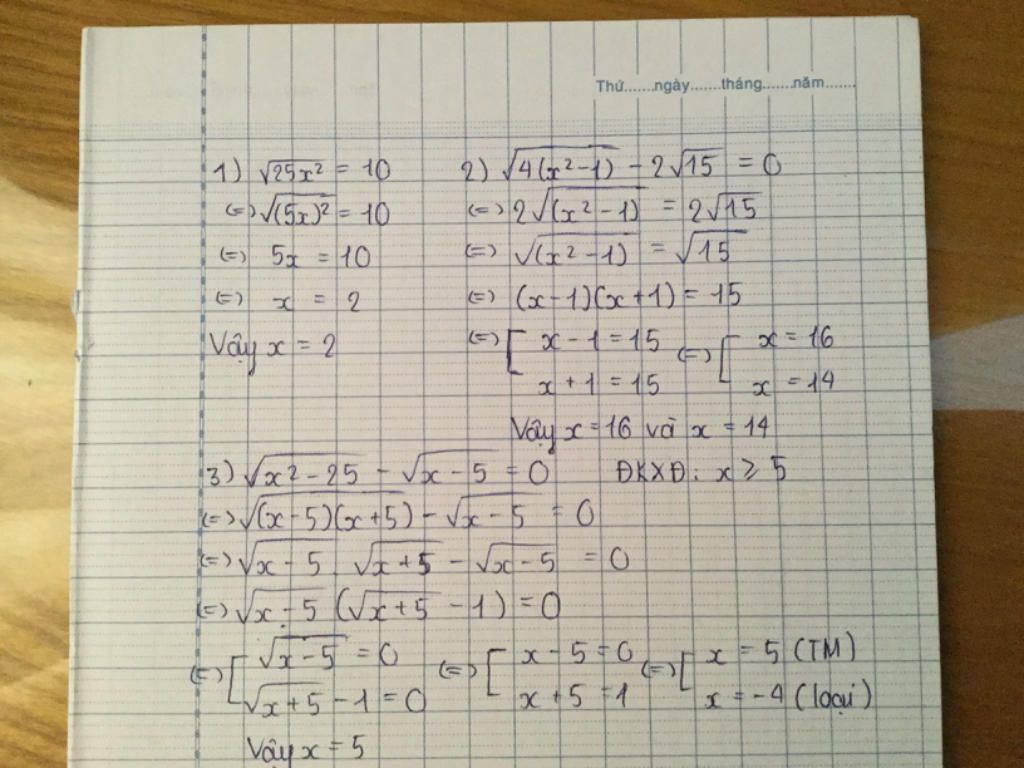 Thứ.......ngày.......tháng.......năm.......
1) √25x² = 10
(=) √(5x)² = 10
(=) 5x = 10
(=) x = 2
Vậy x = 2
2) √4(x²-1) - 2√15 = 0
(=) 2√(x²-1) = 2√15
(=) √(x²-1) = √15
(=) (x-1)(x+1) = 15
(=) [ x-1 = 15 (=) [ x = 16
x+1 = 15 x = 14
Vậy x = 16 và x = 14
3) √x²-25 - √x-5 = 0 ĐKXĐ: x ≥ 5
(=) √(x-5)(x+5) - √x-5 = 0
(=) √x-5 . √x+5 - √x-5 = 0
(=) √x-5 (√x+5 - 1) = 0
(=) [ √x-5 = 0 (=) [ x-5 = 0 (=) [ x = 5 (TM)
√x+5 - 1 = 0 x+5 = 1 x = -4 (loại)
Vậy x = 5